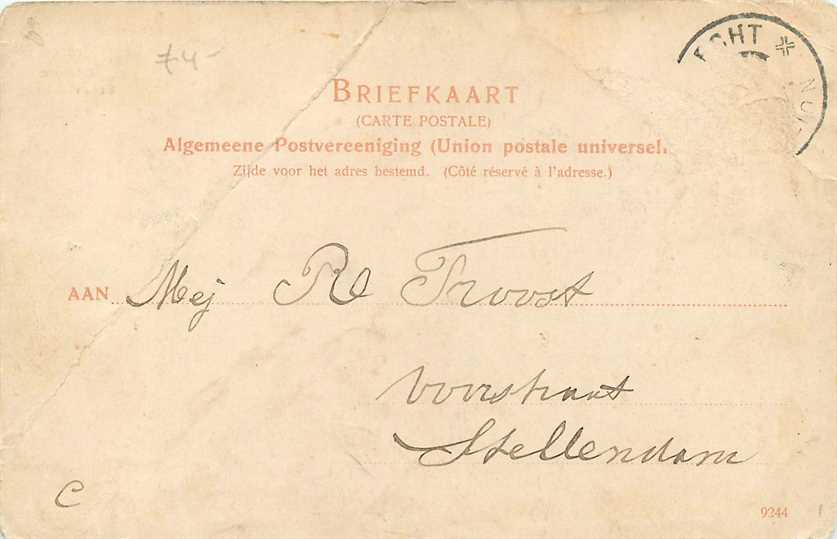 74-
BRIEFKAART
(CARTE POSTALE)
Algemeene Postvereeniging (Union postale universel.
Zijde voor het adres bestemd. (Côté réservé à l'adresse.)
AAN Mej R Troost
Voorstraat
Stellendam
C
9244